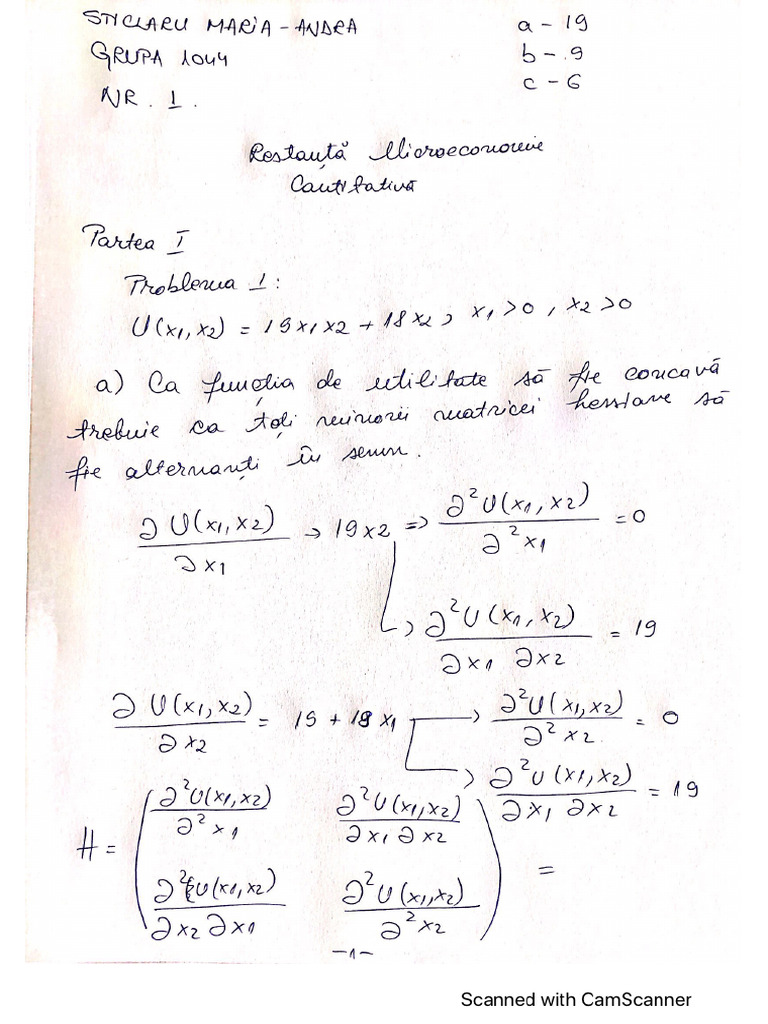 STICLARU MARIA-ANDRA
a - 19
GRUPA 1044
b - 9
NR. 1.
c - 6
Restanță Microeconomie
Cantitativă
Partea I
Problema 1:
U(x1, x2) = 19x1x2 + 18x2, x1>0, x2>0
a) Ca funcția de utilitate să fie concavă
trebuie ca toți minorii matricei hessiane să
fie alternanți în semn.
∂U(x1,x2)/∂x1 → 19x2 => ∂²U(x1,x2)/∂²x1 = 0
↳ ∂²U(x1,x2)/∂x1 ∂x2 = 19
∂U(x1,x2)/∂x2 = 19 + 18x1 → ∂²U(x1,x2)/∂²x2 = 0
↳ ∂²U(x1,x2)/∂x1 ∂x2 = 19
H = ( ∂²U(x1,x2)/∂²x1 ∂²U(x1,x2)/∂x1∂x2
∂²U(x1,x2)/∂x2∂x1 ∂²U(x1,x2)/∂²x2 ) =
-1-
Scanned with CamScanner